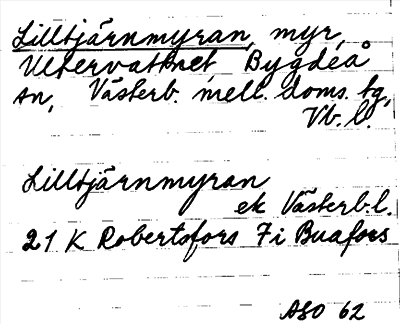 Lilltjärnmyran, myr,
Ultervattnet, Bygdeå
sn, Västerb. mell. doms. tg,
Vb. l.
Lilltjärnmyran
ek Västerb.l.
21 K Robertsfors 7i Buafors
ASO 62